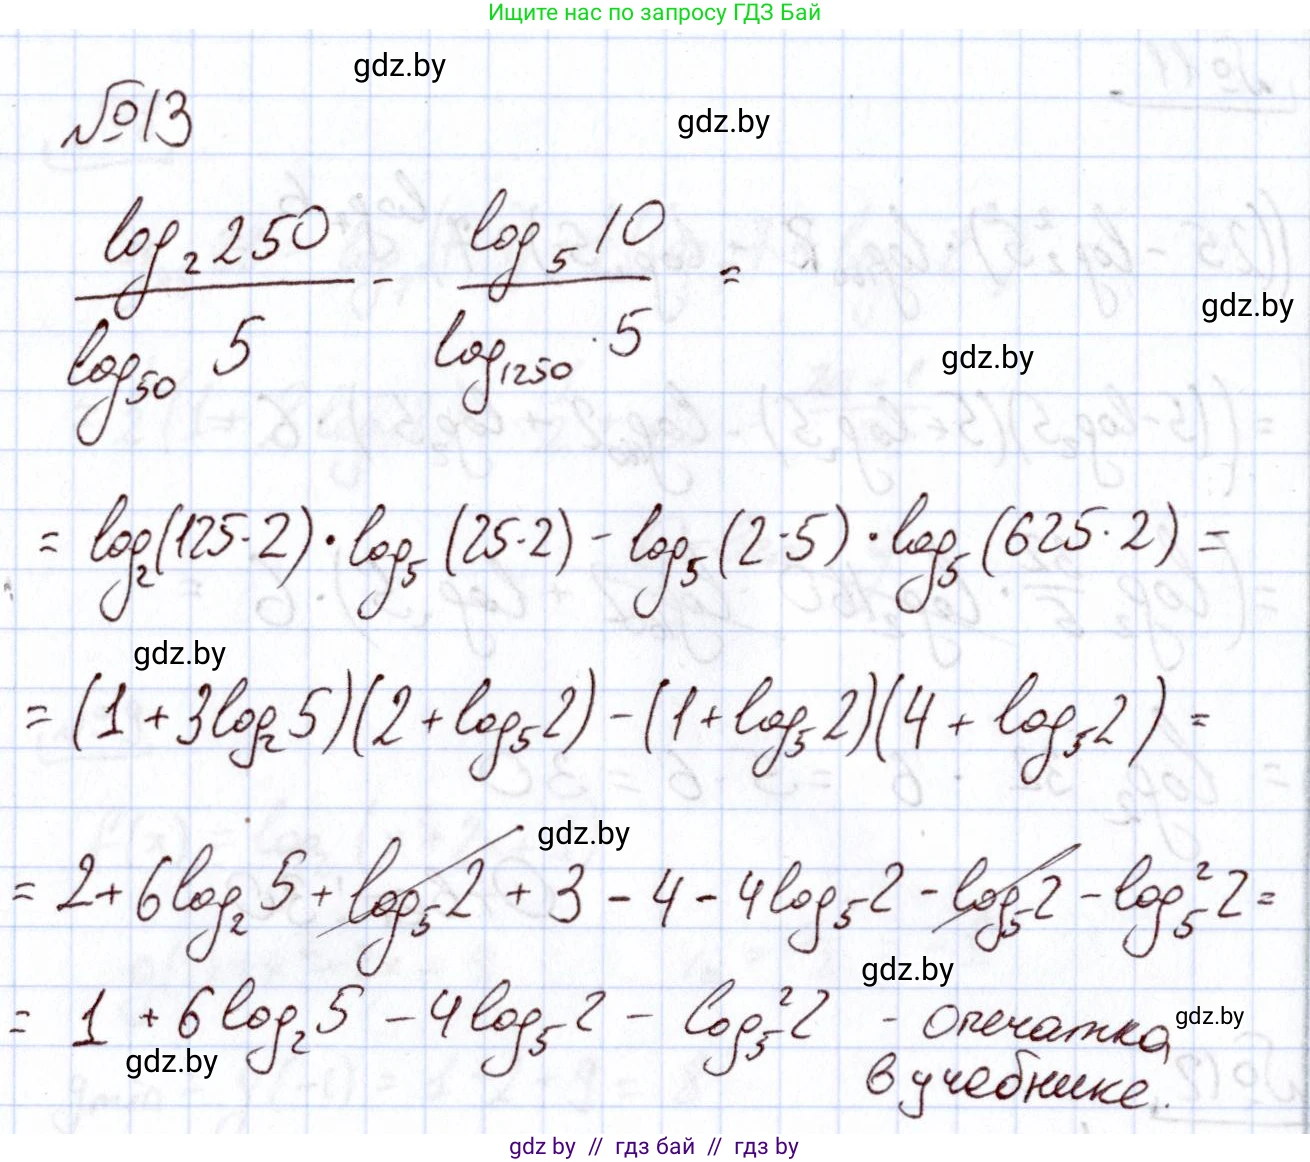 Ищите нас по запросу ГДЗ Бай
gdz.by
№13
gdz.by
log₂250 / log₅₀ 5 - log₅10 / log₁₂₅₀ · 5 =
gdz.by
gdz.by
= log₂(125·2) · log₅(25·2) - log₅(2·5) · log₅(625·2) =
gdz.by
= (1 + 3log₂5)(2 + log₅2) - (1 + log₅2)(4 + log₅2) =
gdz.by
= 2 + 6log₂5 + log₅2 + 3 - 4 - 4log₅2 - log₅2 - log₅²2 =
gdz.by
= 1 + 6log₂5 - 4log₅2 - log₅²2 - опечатка
gdz.by
gdz.by
в учебнике.
gdz.by // гдз бай // гдз by